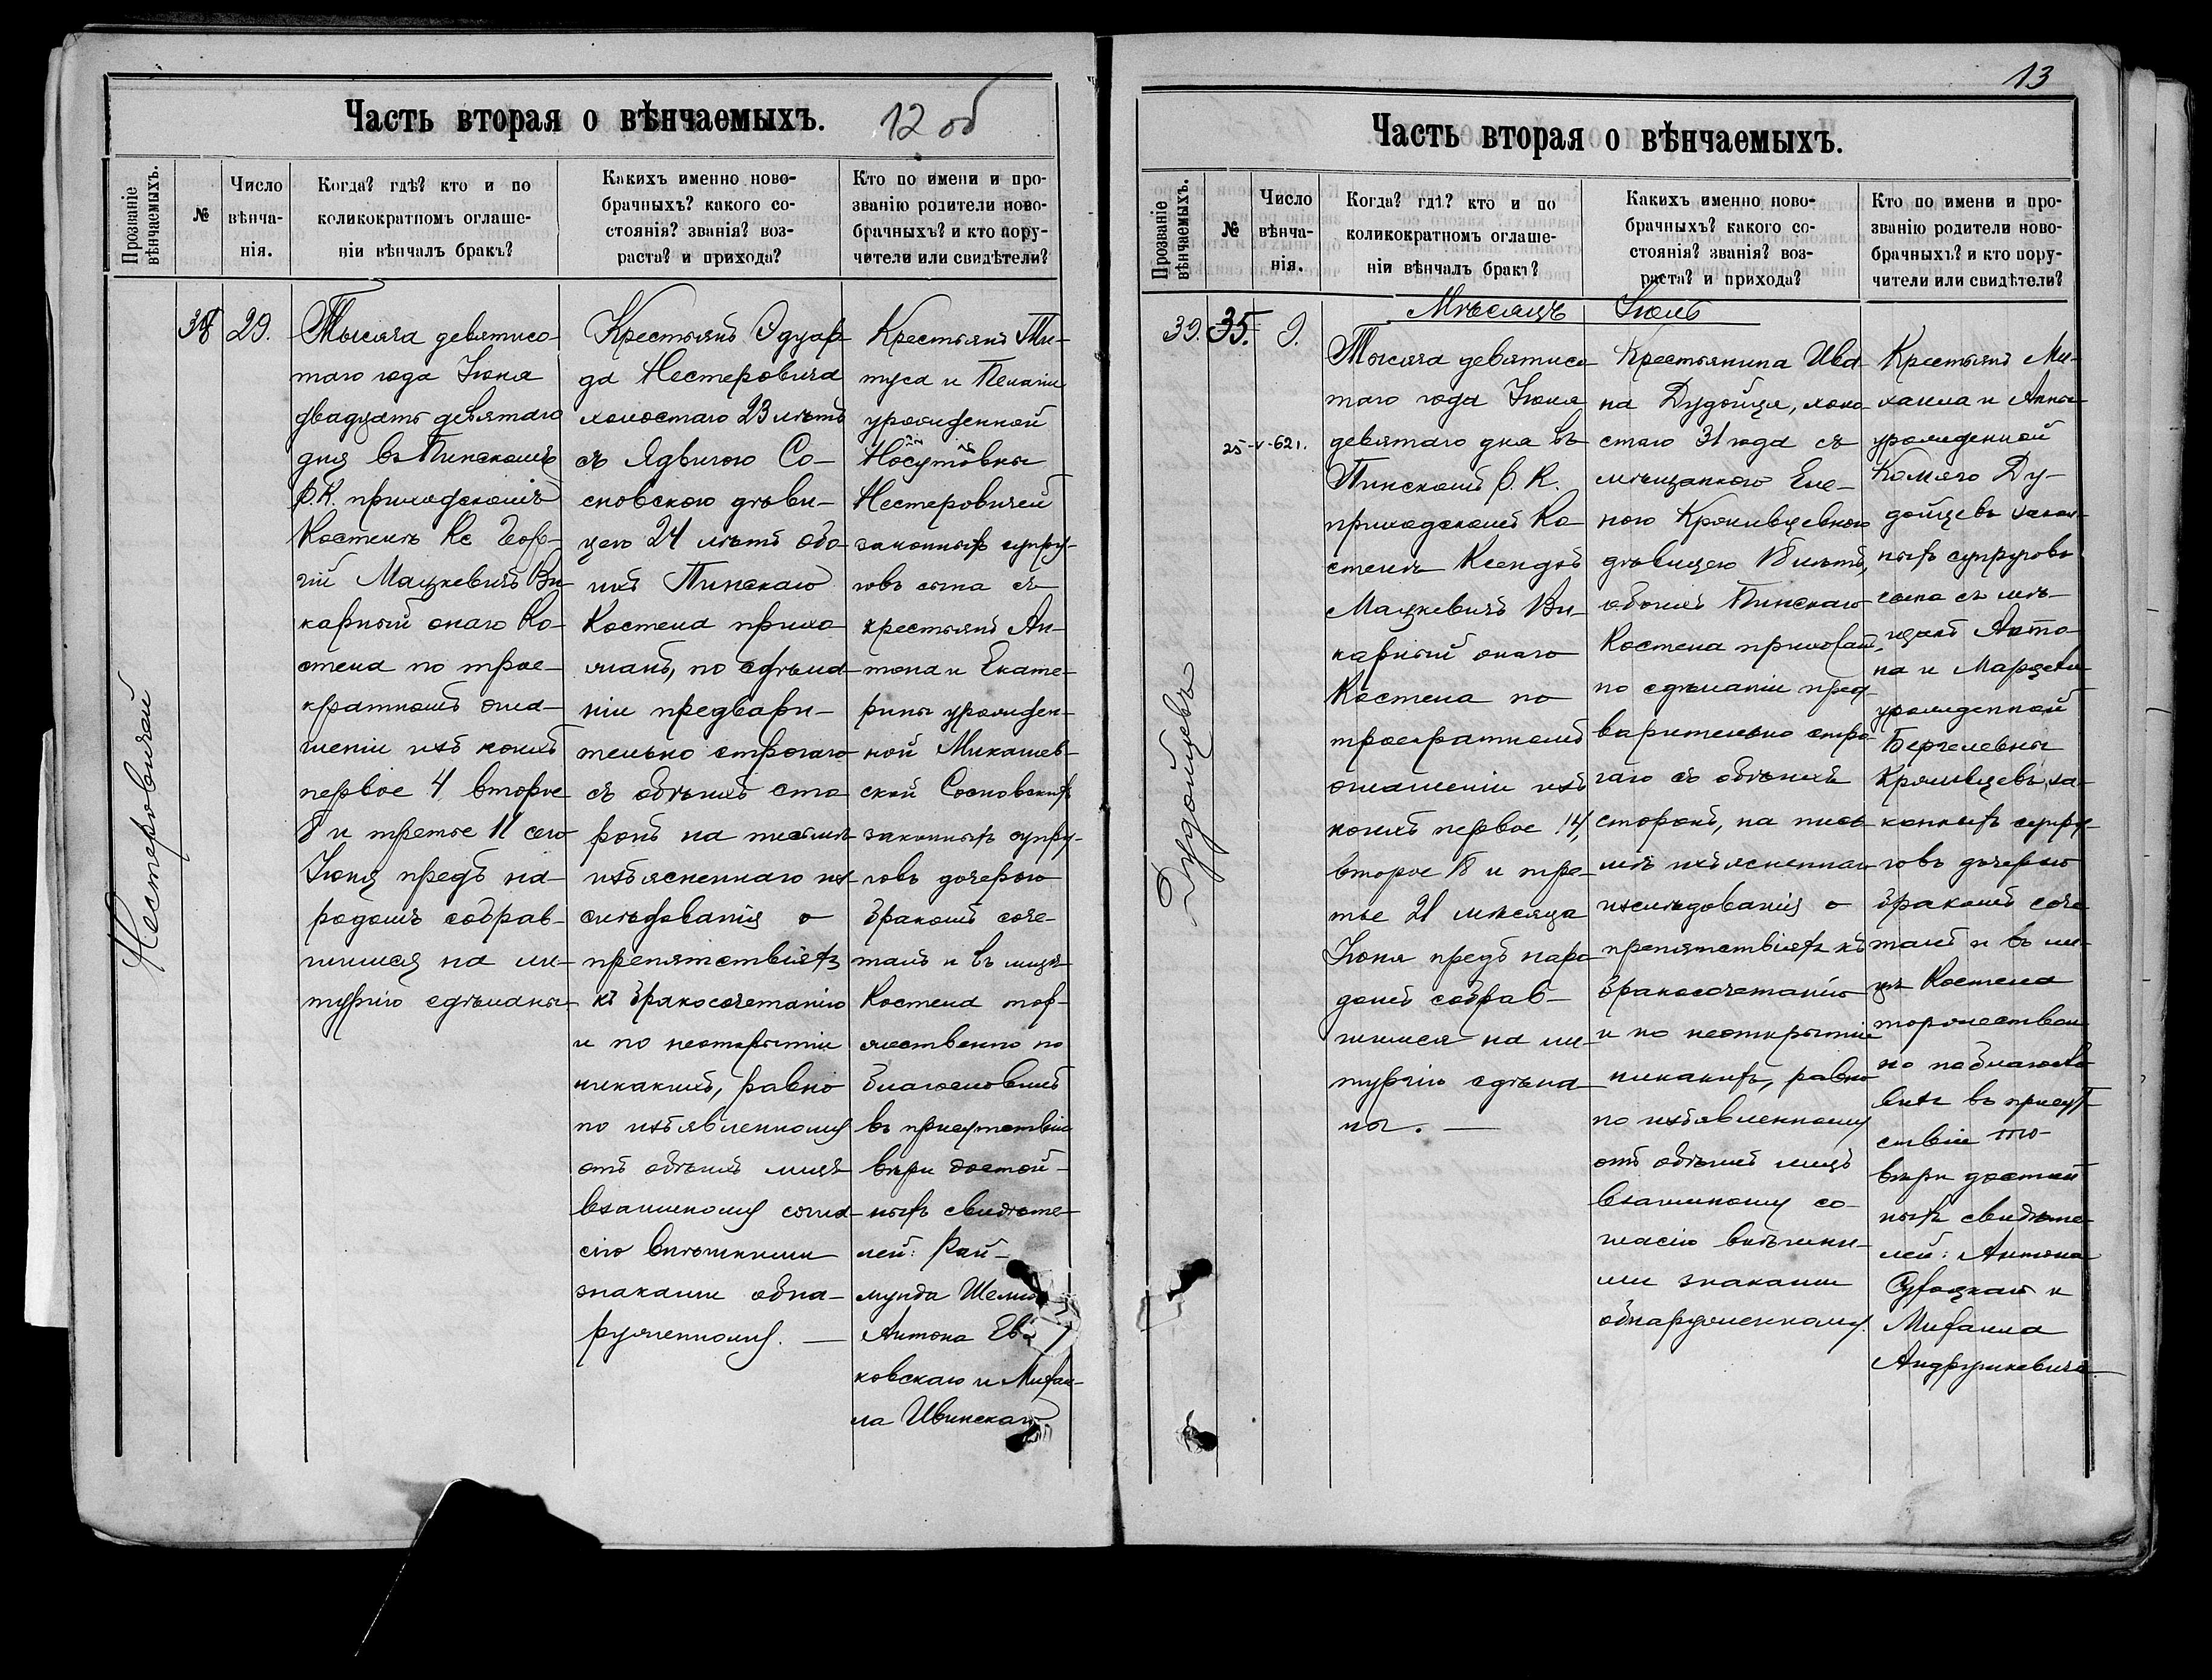 Часть вторая о вѣнчаемыхъ.
12 об
Прозваніе вѣнчаемыхъ.
№
Число вѣнча-
нія.
Когда? гдѣ? кто и по
коликократномъ оглаше-
ніи вѣнчалъ бракъ?
Какихъ именно ново-
брачныхъ? какого со-
стоянія? званія? воз-
раста? и прихода?
Кто по имени и про-
званію родители ново-
брачныхъ? и кто пору-
чители или свидѣтели?
Нестеровичей
29.
Тысяча девятисо-
таго года Іюня
двадцать девятаго
дня въ Пинскомъ
Р.К. приходскомъ
Костелѣ Кс Геор-
гій Мацкевичъ Ви-
карный онаго Ко-
стела по трое-
кратномъ огла-
шеніи изъ коихъ
первое 4 второе
8 и третье 11 сего
Іюня предъ на-
родомъ собрав-
шимся на ли-
тургію сдѣланы
Крестьянъ Эдуар-
да Нестеровича
холостаго 23 лѣтъ
съ Ядвигою Со-
сновскою дѣви-
цею 24 лѣтъ обо-
ихъ Пинскаго
Костела прихо-
жанъ, по сдѣла-
ніи предвари-
тельно строгаго
съ обѣихъ сто
ронъ на письмѣ
изъясненнаго из-
слѣдованія о
препятствіяхъ
къ бракосочетанію
и по неоткрытіи
никакихъ, равно
по изъявленному
отъ обѣихъ лицъ
взаимному согла-
сію внѣшними
знаками обна-
руженному. —
Крестьянъ Ти-
туса и Пелагіи
урожденной
Носутовны
Нестеровичей
законныхъ супру-
говъ сына съ
крестьянъ Ан-
тона и Екате-
рины урожден-
ной Микашев-
ской Сосновскихъ
законныхъ супру-
говъ дочерью
бракомъ соче-
талъ и въ лицѣ
Костела тор-
жественно по
благословилъ
въ присутствіи
вѣри достой-
ныхъ свидѣте-
лей: Рай-
мунда
Антона
ковскаго и Михаи-
ла Ивинскаго
13
Часть вторая о вѣнчаемыхъ.
Прозваніе вѣнчаемыхъ.
№
Число вѣнча-
нія.
Когда? гдѣ? кто и по
коликократномъ оглаше-
ніи вѣнчалъ бракъ?
Какихъ именно ново-
брачныхъ? какого со-
стоянія? званія? воз-
раста? и прихода?
Кто по имени и про-
званію родители ново-
брачныхъ? и кто пору-
чители или свидѣтели?
Дудойцевъ
39.
35.
9.
25-V-62г.
Мѣсяцъ Іюль
Тысяча девятисо
таго года Іюня
девятаго дня въ
Пинскомъ Р. К.
приходскомъ Ко
стелѣ Ксендзъ
Мацкевичъ Ви-
карный онаго
Костела по
троекратномъ
оглашеніи изъ
коихъ первое 14,
второе 18 и тре-
тье 21 мѣсяца
Іюня предъ наро
домъ собрав-
шимся на ли-
тургію сдѣла-
ны. —
Крестьянина Ива
на Дудойця, холо
стаго 31 года съ
мѣщанкою Еле-
ною
дѣвицею 18 лѣтъ,
обоихъ Пинскаго
Костела прихожанъ,
по сдѣланіи пред-
варительно стро-
гаго съ обѣихъ
сторонъ, на пись
мѣ изъясненнаго
изслѣдованія о
препятствіяхъ къ
бракосочетанію
и по неоткрытіи
никакихъ, равно
по изъявленному
отъ обѣихъ лицъ
взаимному со-
гласію внѣшни-
ми знаками
обнаруженному.
Крестьянъ Ми-
хаила и Анны
урожденной
Ду-
дойцевъ закон-
ныхъ супруговъ
сына съ мѣ-
щанъ Анто-
на и
урожденной
за-
конныхъ супру-
говъ дочерью
бракомъ соче
талъ и въ ли-
цѣ Костела
торжествен
но поблагосло
вилъ въ присут-
ствіи
вѣри достой
ныхъ свидѣте-
лей: Антона
и
Михаила
Андрушкевича.